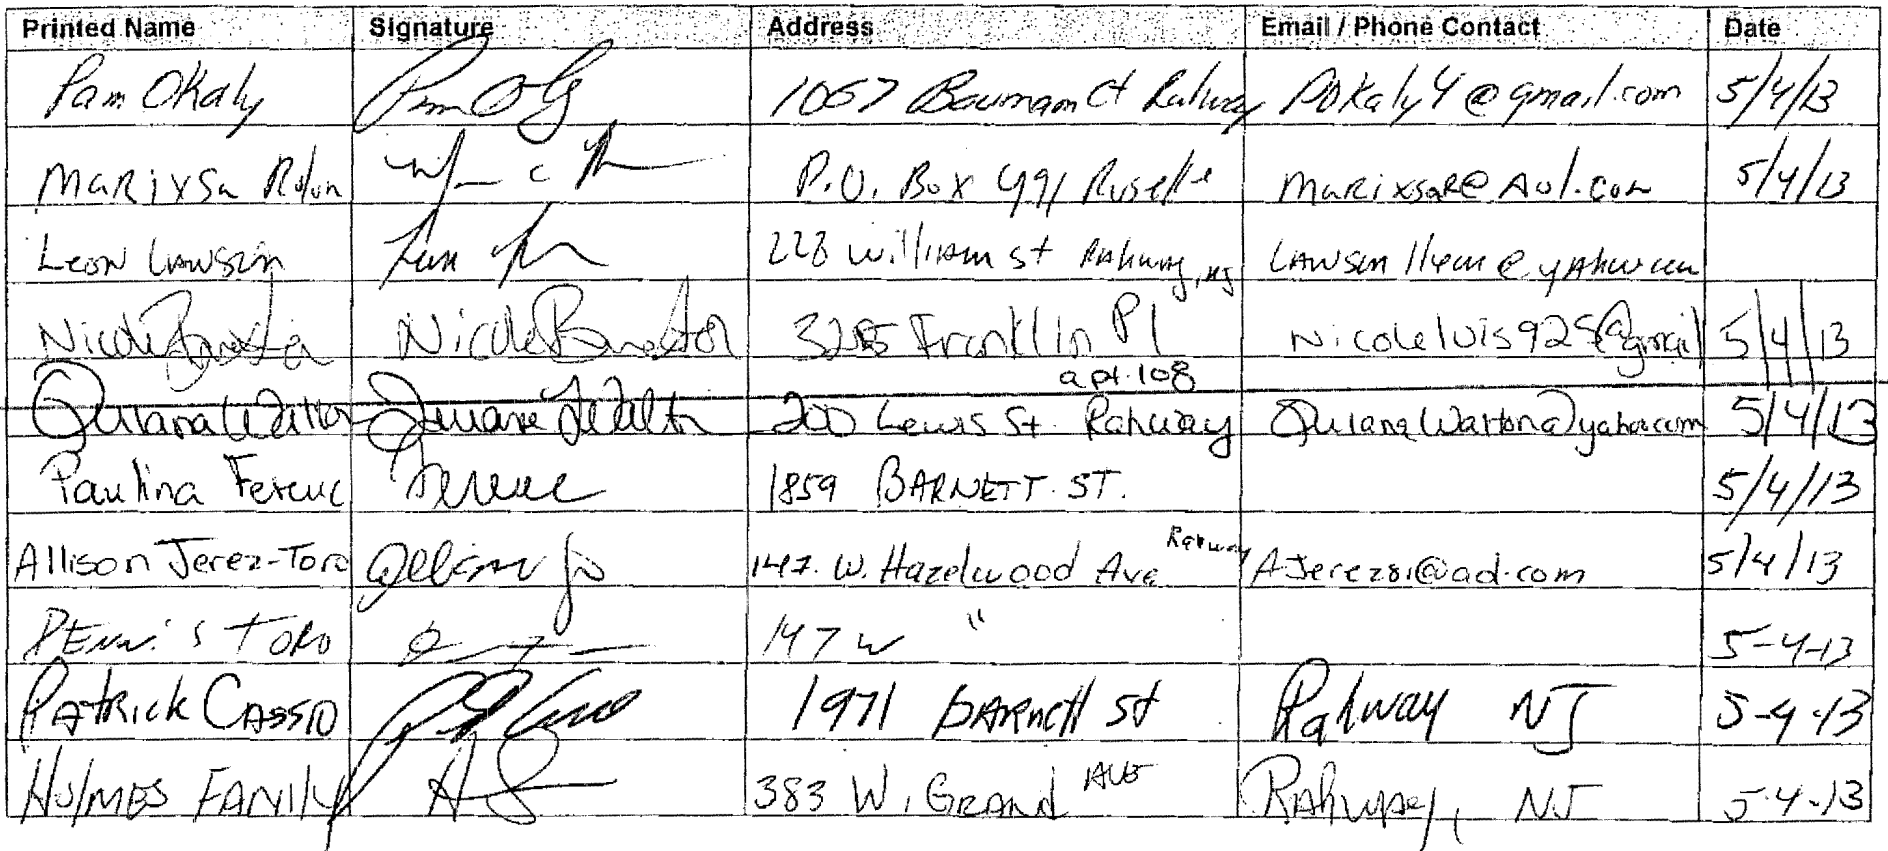 Printed Name Signature Address Email / Phone Contact Date
Pam OKaly 1057 Bauman Ct Rahway POKaly4@gmail.com 5/4/13
MARIXSa P.O. Box 991 Roselle MARIXSaR@Aol.com 5/4/13
Leon Lawson 228 William St Rahway, NJ
Nicole Nicole Franklin Pl 5/4/13
apt. 108
Quiana Walton Quiana Walton 200 Lewis St. Rahway QuianaWalton@yahoo.com 5/4/13
Paulina Ferenc Ferenc 1859 BARNETT ST. 5/4/13
Rahway
Allison Jerez-Toro 147 W. Hazelwood Ave AJerez81@aol.com 5/4/13
DENNiS TORO 147 W " 5-4-13
PATRICK CASSIO 1971 BARNETT St Rahway NJ 5-4-13
HOLMES FAMILY 383 W. GRAND AVE RAHWAY, NJ 5-4-13